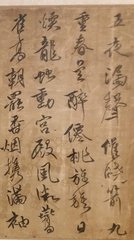 五夜漏聲催曉箭九
重春色醉僊桃旌旂日
煖龍蛇動宮殿風微燕
雀高朝罷香烟携滿袖